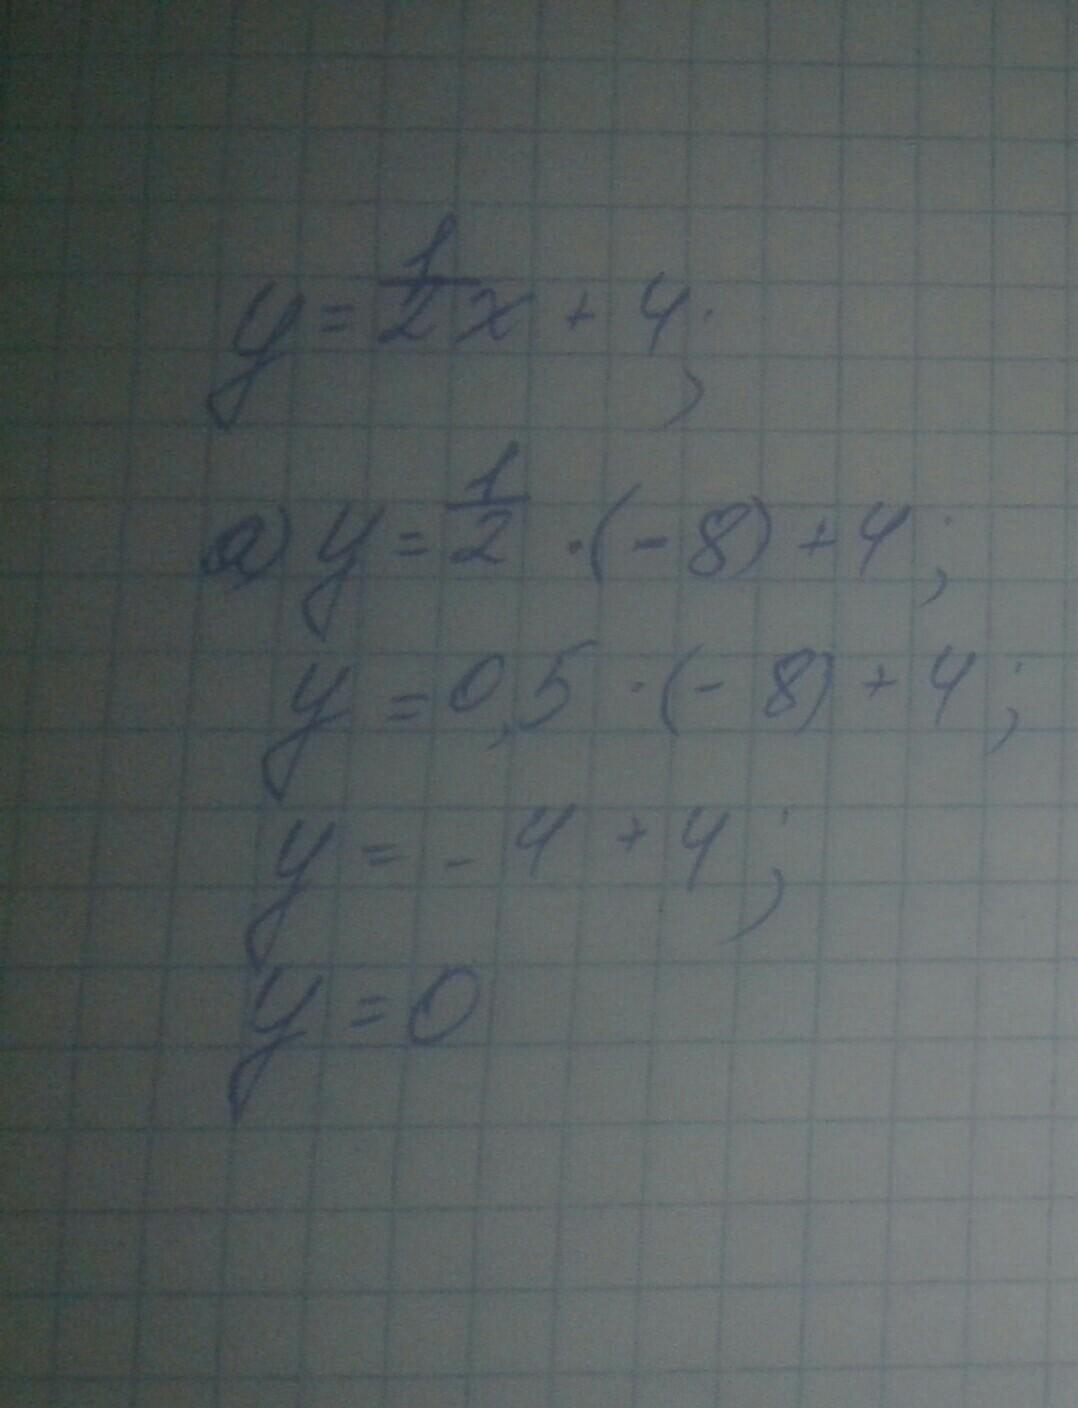 y = 1/2 x + 4;
а) y = 1/2 · (-8) + 4;
y = 0,5 · (- 8) + 4;
y = - 4 + 4;
y = 0